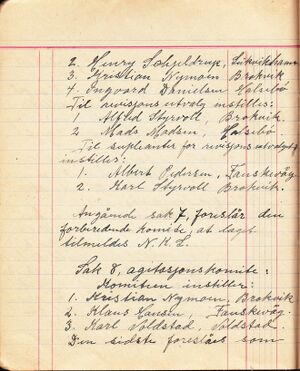 2. Henry Schjeldrup,
3. Kristian Nymoen Brokvik
4. Ingvard Danielsen Halsebö
Til revisjons utvalg instilles:
1 Alfred Styrvoll, Brokvik.
2 Mads Madsen, Halsebö
Til supleanter for revisjons utvalget
instiller:
1. Albert Pedersen, Fanskevåg
2. Karl Styrvoll Brokvik.
Angående sak 7, foreslår den
forberedende komite, at laget
tilmeldes N.K.L.
Sak 8, agitasjonskomite:
Komitien instiller:
1. Kristian Nymoen, Brokvik
2. Klaus Hansen, Fanskevåg.
3. Karl Voldstad, Voldstad.
Den sidste foreslåes som